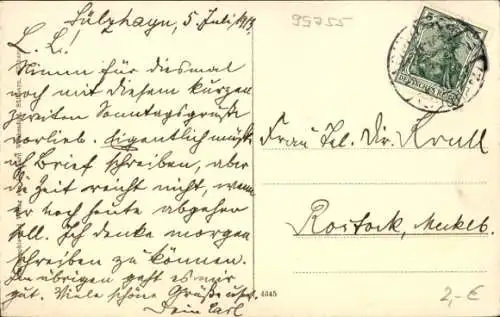 Sülzhayn, 5. Juli
L. L.!
Nimm für diesmal
noch mit diesem kurzen
zweiten Sonntagsgruße
vorlieb. Eigentlich müßte
ich Brief schreiben, aber
die Zeit reicht nicht, wenn
er noch heute abgehen
soll. Ich denke morgen
schreiben zu können.
Im übrigen geht es mir
gut. Viele schöne Grüße
Dein Carl
95755
DEUTSCHES REICH
Frau Tel. Dir. Krull
Rostock, Mecklb.
4345
2,- €